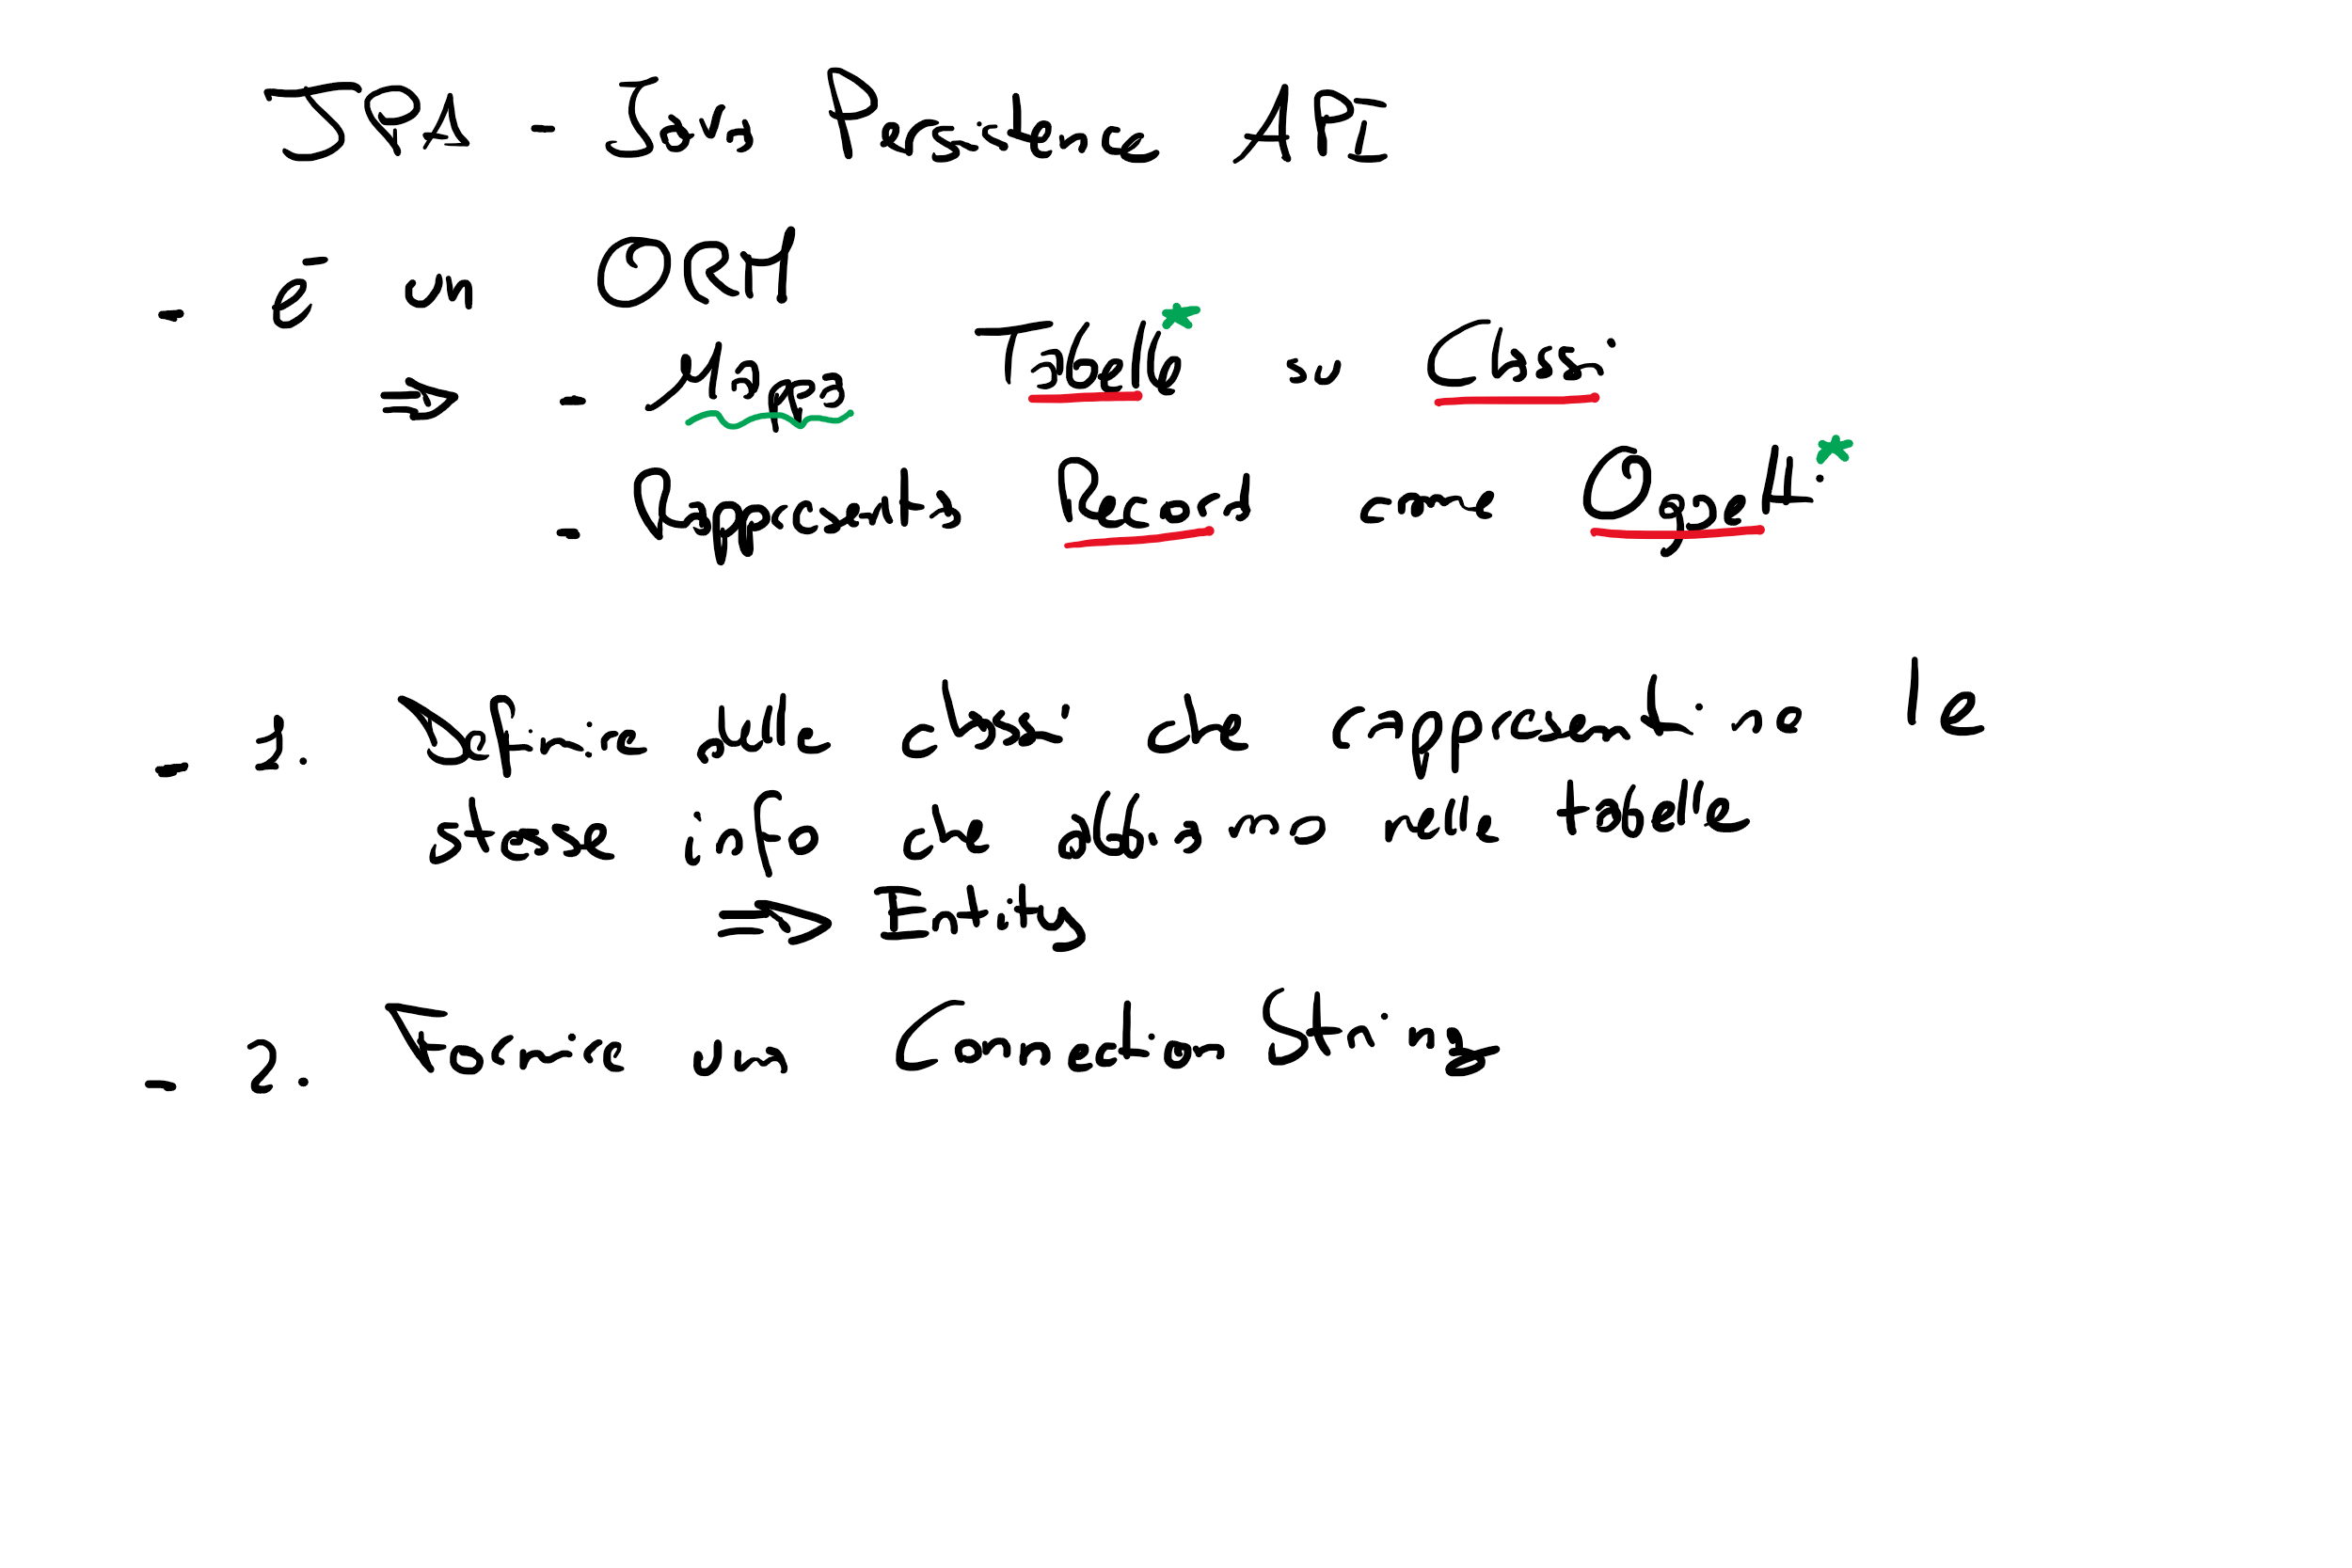 JPA - Java Persistence API
- è un ORM
=> - Mappa Tabelle* su Classi
- Rappresenta Record come Oggetti*
- 1. Definire delle classi che rappresentino le
stesse info che abbiamo nelle tabelle
=> Entity
- 2. Fornire una Connection String